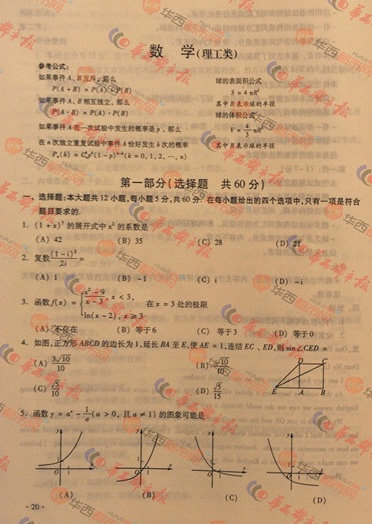 数 学(理工类)
参考公式:
如果事件A、B互斥,那么 球的表面积公式
P(A+B)=P(A)+P(B) S=4πR²
如果事件A、B相互独立,那么 其中R表示球的半径
P(A·B)=P(A)·P(B) 球的体积公式
如果事件A在一次试验中发生的概率是p,那么 V=4/3 πR³
在n次独立重复试验中事件A恰好发生k次的概率 其中R表示球的半径
(k=0,1,2,…,n)
第一部分(选择题 共60分)
一、选择题:本大题共12小题,每小题5分,共60分。在每小题给出的四个选项中,只有一项是符合
题目要求的.
1. (1+x)⁷的展开式中x²的系数是
(A) 42 (B) 35 (C) 28 (D) 21
2. 复数(1-i)²/2i=
(A) 1 (B) -1 (C) i (D) -i
3. 函数f(x)={ x²-9/x-3, x<3, ln(x-2), x≥3 在x=3处的极限
(A) 不存在 (B) 等于6 (C) 等于3 (D) 等于0
4. 如图,正方形ABCD的边长为1,延长BA至E,使AE=1,连结EC、ED,则sin∠CED=
(A) 3√10/10 (B) √10/10
(C) √5/10 (D) √5/15
D C
E A B
5. 函数y=aˣ-1/a(a>0,且a≠1)的图象可能是
(A) (B) (C) (D)
·20·
华西都市报